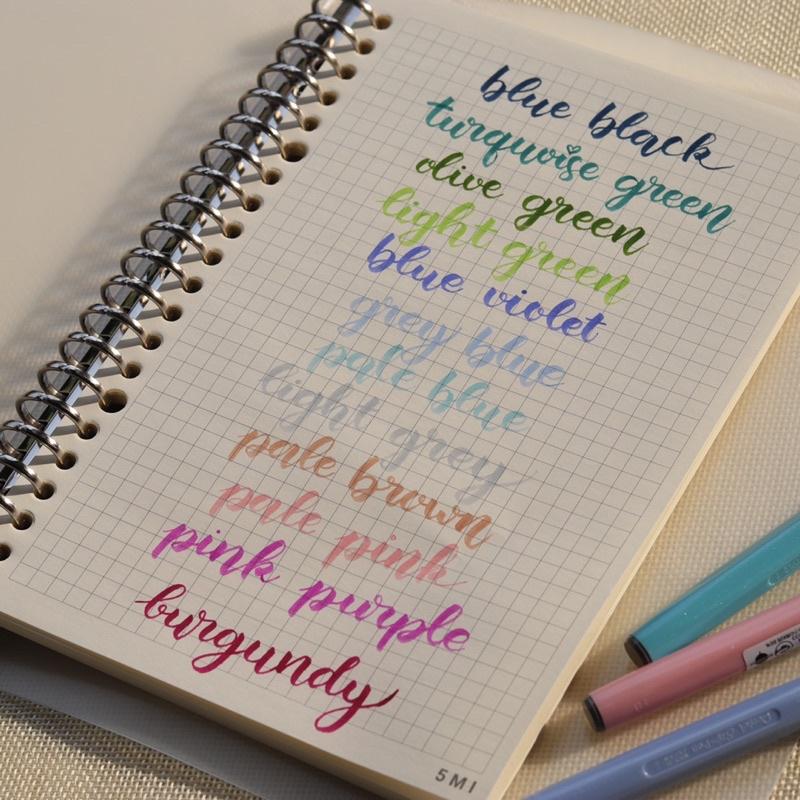 blue black
turquoise green
olive green
light green
blue violet
grey blue
pale blue
light grey
pale brown
pale pink
pink purple
burgundy
5MI
Pentel